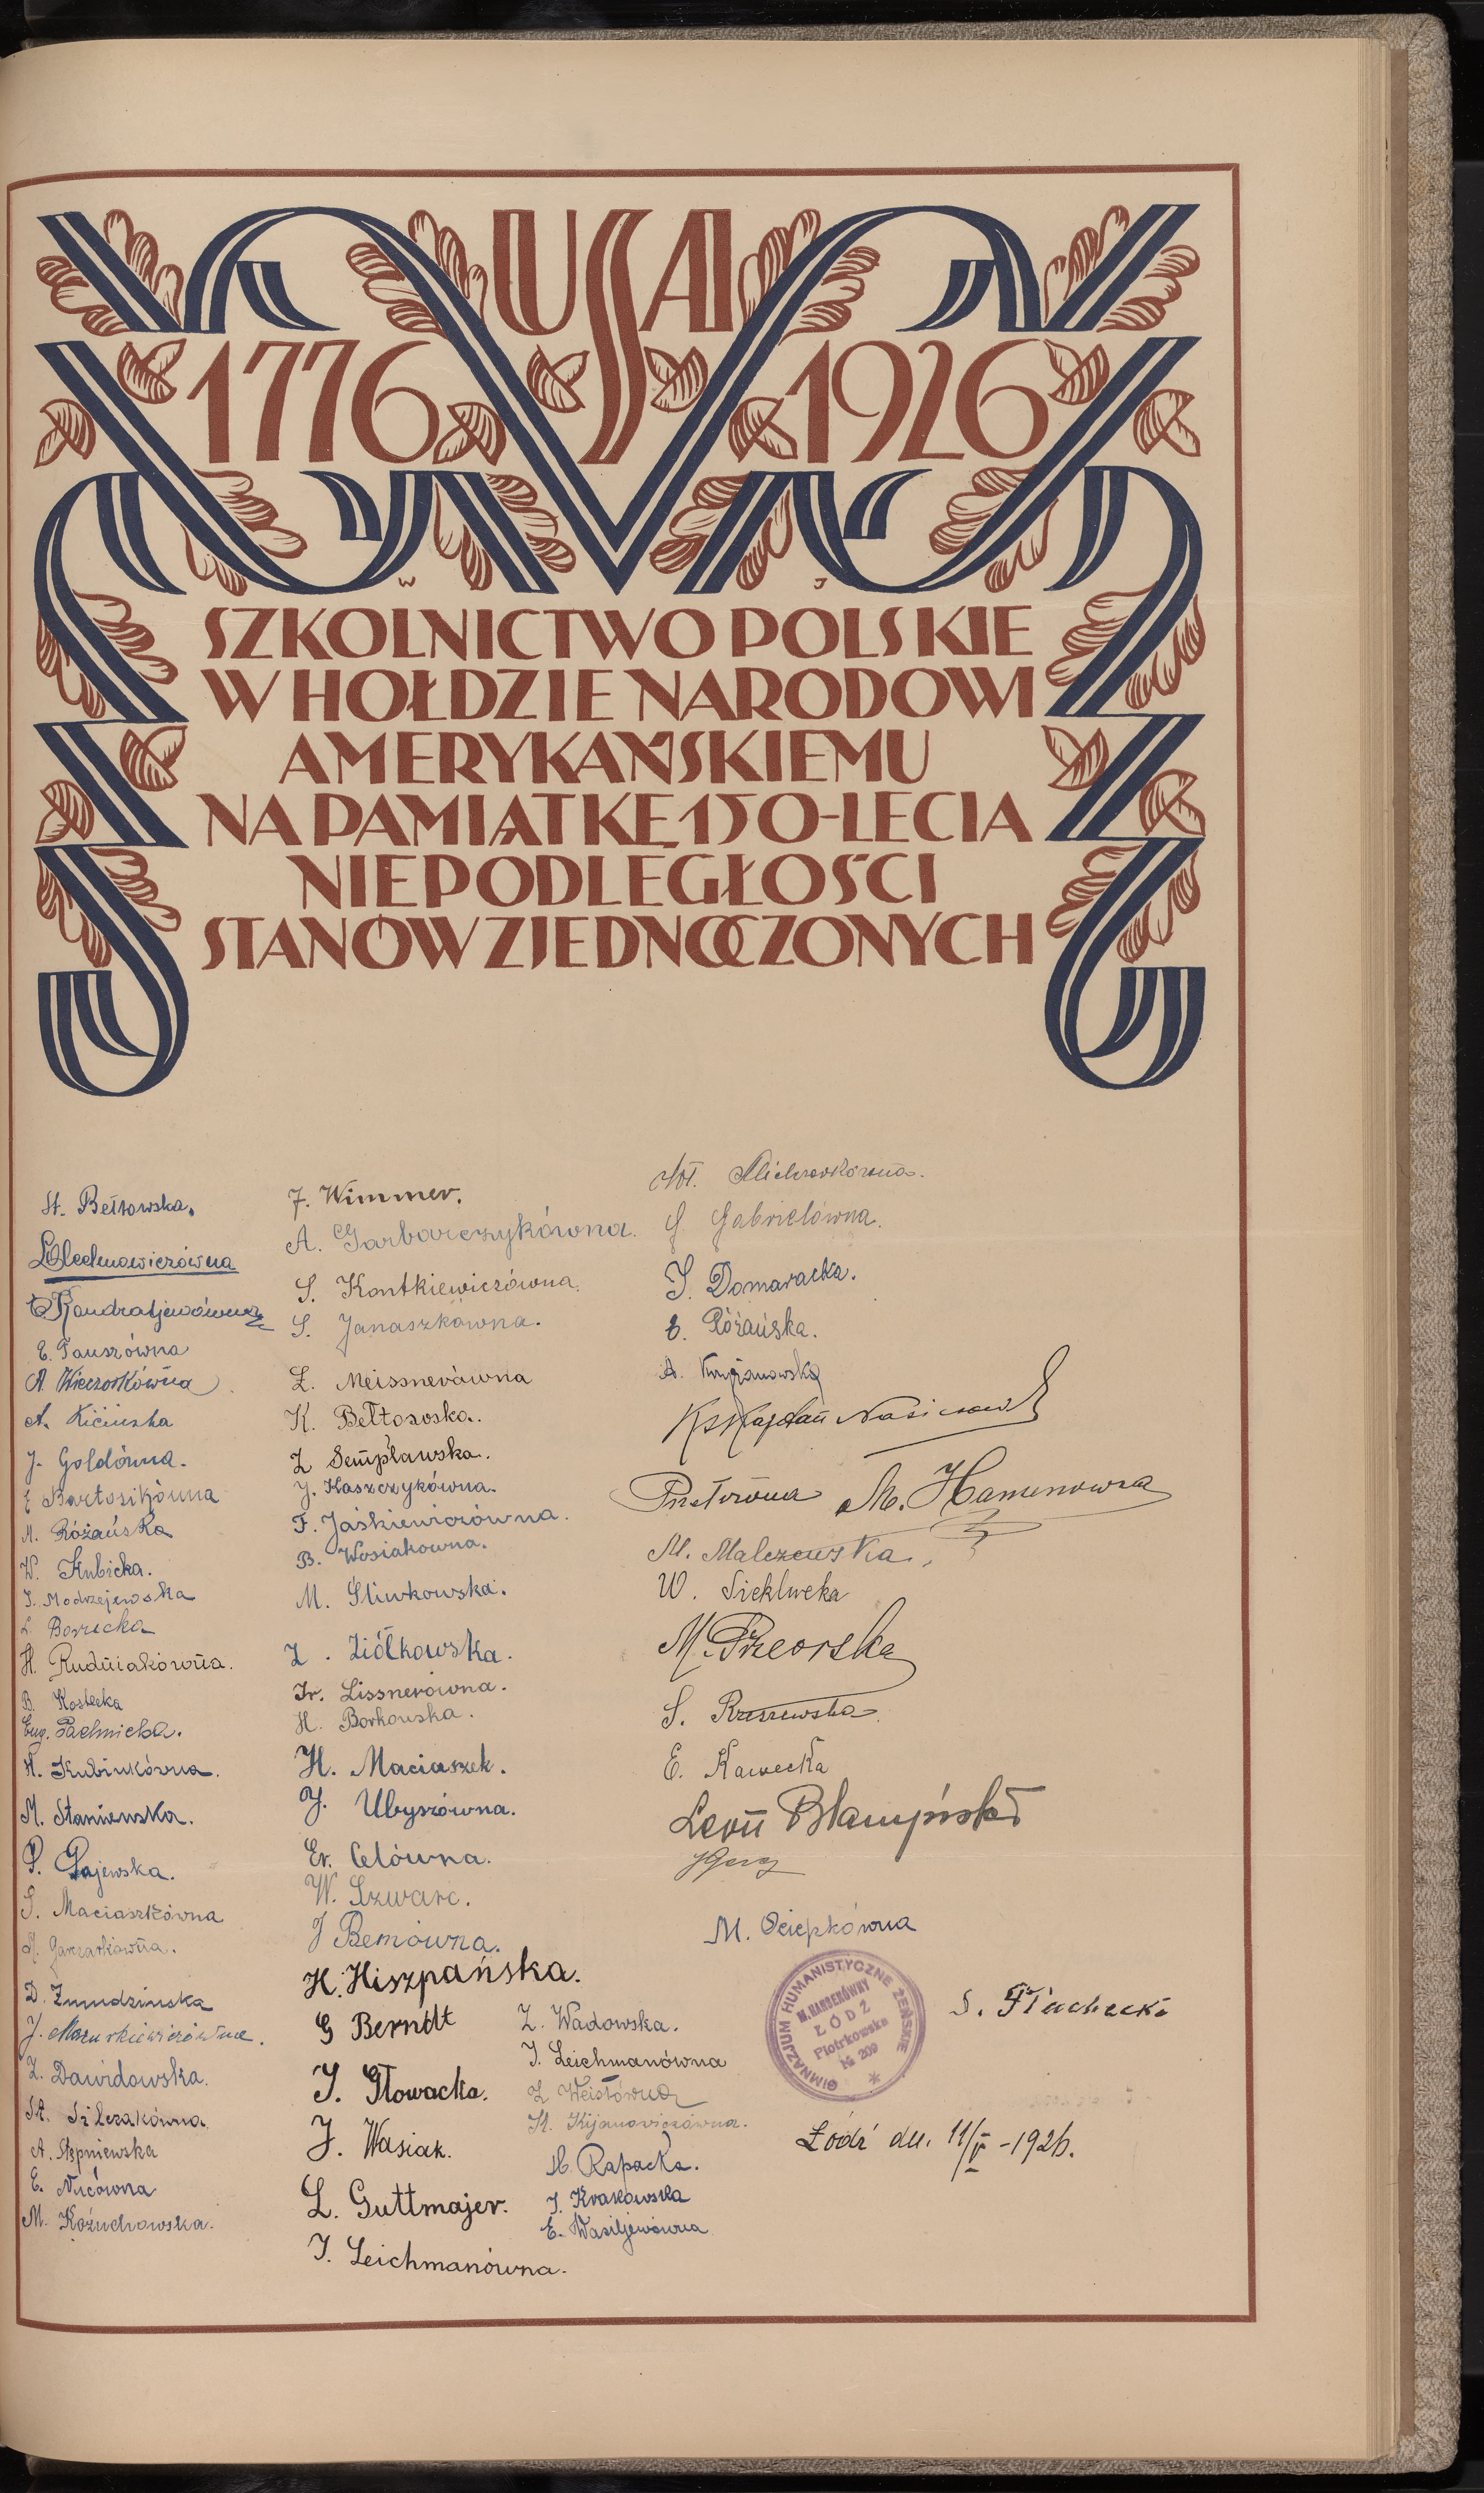 USA
1776 1926
W J
SZKOLNICTWO POLSKIE
W HOŁDZIE NARODOWI
AMERYKAŃSKIEMU
NA PAMIĄTKĘ 150-LECIA
NIEPODLEGŁOŚCI
STANÓW ZJEDNOCZONYCH
St. Bełtowska.
Olechnowiczówna
Kondratjewówna
E. Tauszówna
A. Wieczorkówna
A. Kicińska
J. Goldówna.
E Bartosikówna
M. Różańska
W. Kubicka.
I. Modrzejewska
L. Borucka
H. Rudniakówna.
B. Kostecka
Eug. Pachnicka.
H. Kubinkówna.
M. Staniewska.
P. Gajewska.
S. Maciaszkówna
M. Garczarkówna.
D. Żmudzinska
J. Mazurkiewiczówna.
Z. Dawidowska.
St. Ślezakówna
A. Stępniewska
E. Nicówna
M. Kożuchowska.
F. Wimmer.
A. Garbarczykówna.
S. Kontkiewiczówna.
S. Janaszkówna.
Z. Meissnerówna
K. Bełtowska.
Z Sempławska.
J. Kaszczykówna.
F. Jaśkiewiczówna.
B. Wosiakowna.
M. Śliwkowska.
Z. Ziółkowska.
Ir. Lissnerówna.
H. Borkowska.
H. Maciaszek.
J. Ubyszówna.
Er. Celówna.
W. Szwarc.
J Bemówna.
H. Hiszpańska.
G Berndt
I. Głowacka.
J. Wasiak.
L. Guttmajer.
I. Leichmanówna.
Z. Wadowska.
I. Leichmanówna
Z Weistówna
St. Kijanowiczówna.
M. Rapacka.
I. Krakowska
E. Wasiljewówna
M. Michnorkówna.
G Gabrielówna.
I. Domaracka.
E. Różańska.
A. Krzyżanowska
Ks Kajetan Nasierowski
Przełożona M. Hansenowna
M. Malczewska.
W. Sieklucka
M. Przeorska
S. Rzeszewska
E. Kawecka
Leon
M. Ociepkówna
S. Tłuchecki
GIMNAZJUM HUMANISTYCZNE ŻEŃSKIE
M. HANSENÓWNY
ŁÓDŹ
Piotrkowska
№ 209
Łódź dn. 11/V – 1926.